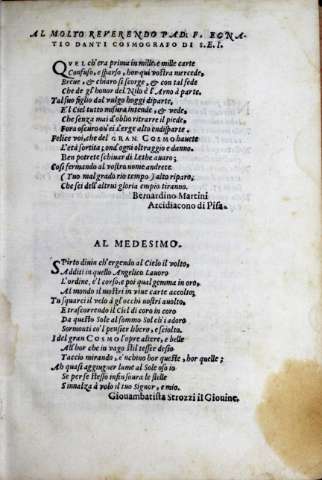 AL MOLTO REVERENDO PAD. F. EGNA-
TIO DANTI COSMOGRAFO DI S.E.I.
QVEL ch'era prima in mille, e mille carte
Confuso, e sparso, hor qui vostra mercede,
Breue, & chiaro si scorge, & con tal fede
Che de gl'honor del Nilo è l'Arno à parte.
Tal suo figlio dal vulgo hoggi diparte,
E'l Ciel tutto misura intende, & vede,
Che senza mai d'oblio ritrarre il piede,
Fora oscuro ou'ei s'erge alto in disparte.
Felice voi, che del GRAN COSMO haueste
L'età sortita; ond'ogni oltraggio e danno
Ben potrete schiuar di Lethe auaro;
Cosi fermando al vostro nome andrete
(Tuo malgrado rio tempo) alto riparo,
Che sei dell'altrui gloria empio tiranno.
Bernardino Martini
Arcidiacono di Pisa.
AL MEDESIMO.
SPirto diuin ch'ergendo al Cielo il volto,
Additi in quello Angelico Lauoro
L'ordine, e'l corso, e poi qual gemma in oro,
Al mondo il mostri in viue carte accolto,
Tu squarci il velo à gl'occhi nostri auolto,
E trascorrendo il Ciel di coro in coro
Da questo Sole al sommo Sole ch'i adoro
Sormonti co'l pensier libero, e sciolto.
I del gran COSMO l'opre altere, e belle
All'hor che in vago stil tesser desio
Taccio mirando, e'nchino hor queste, hor quelle;
Ah quasi aggiunger lume al Sole oso io
Se per se stesso infin soura le stelle
S'innalza à volo il tuo Signor, e mio.
Giouambatista Strozzi il Giouine.